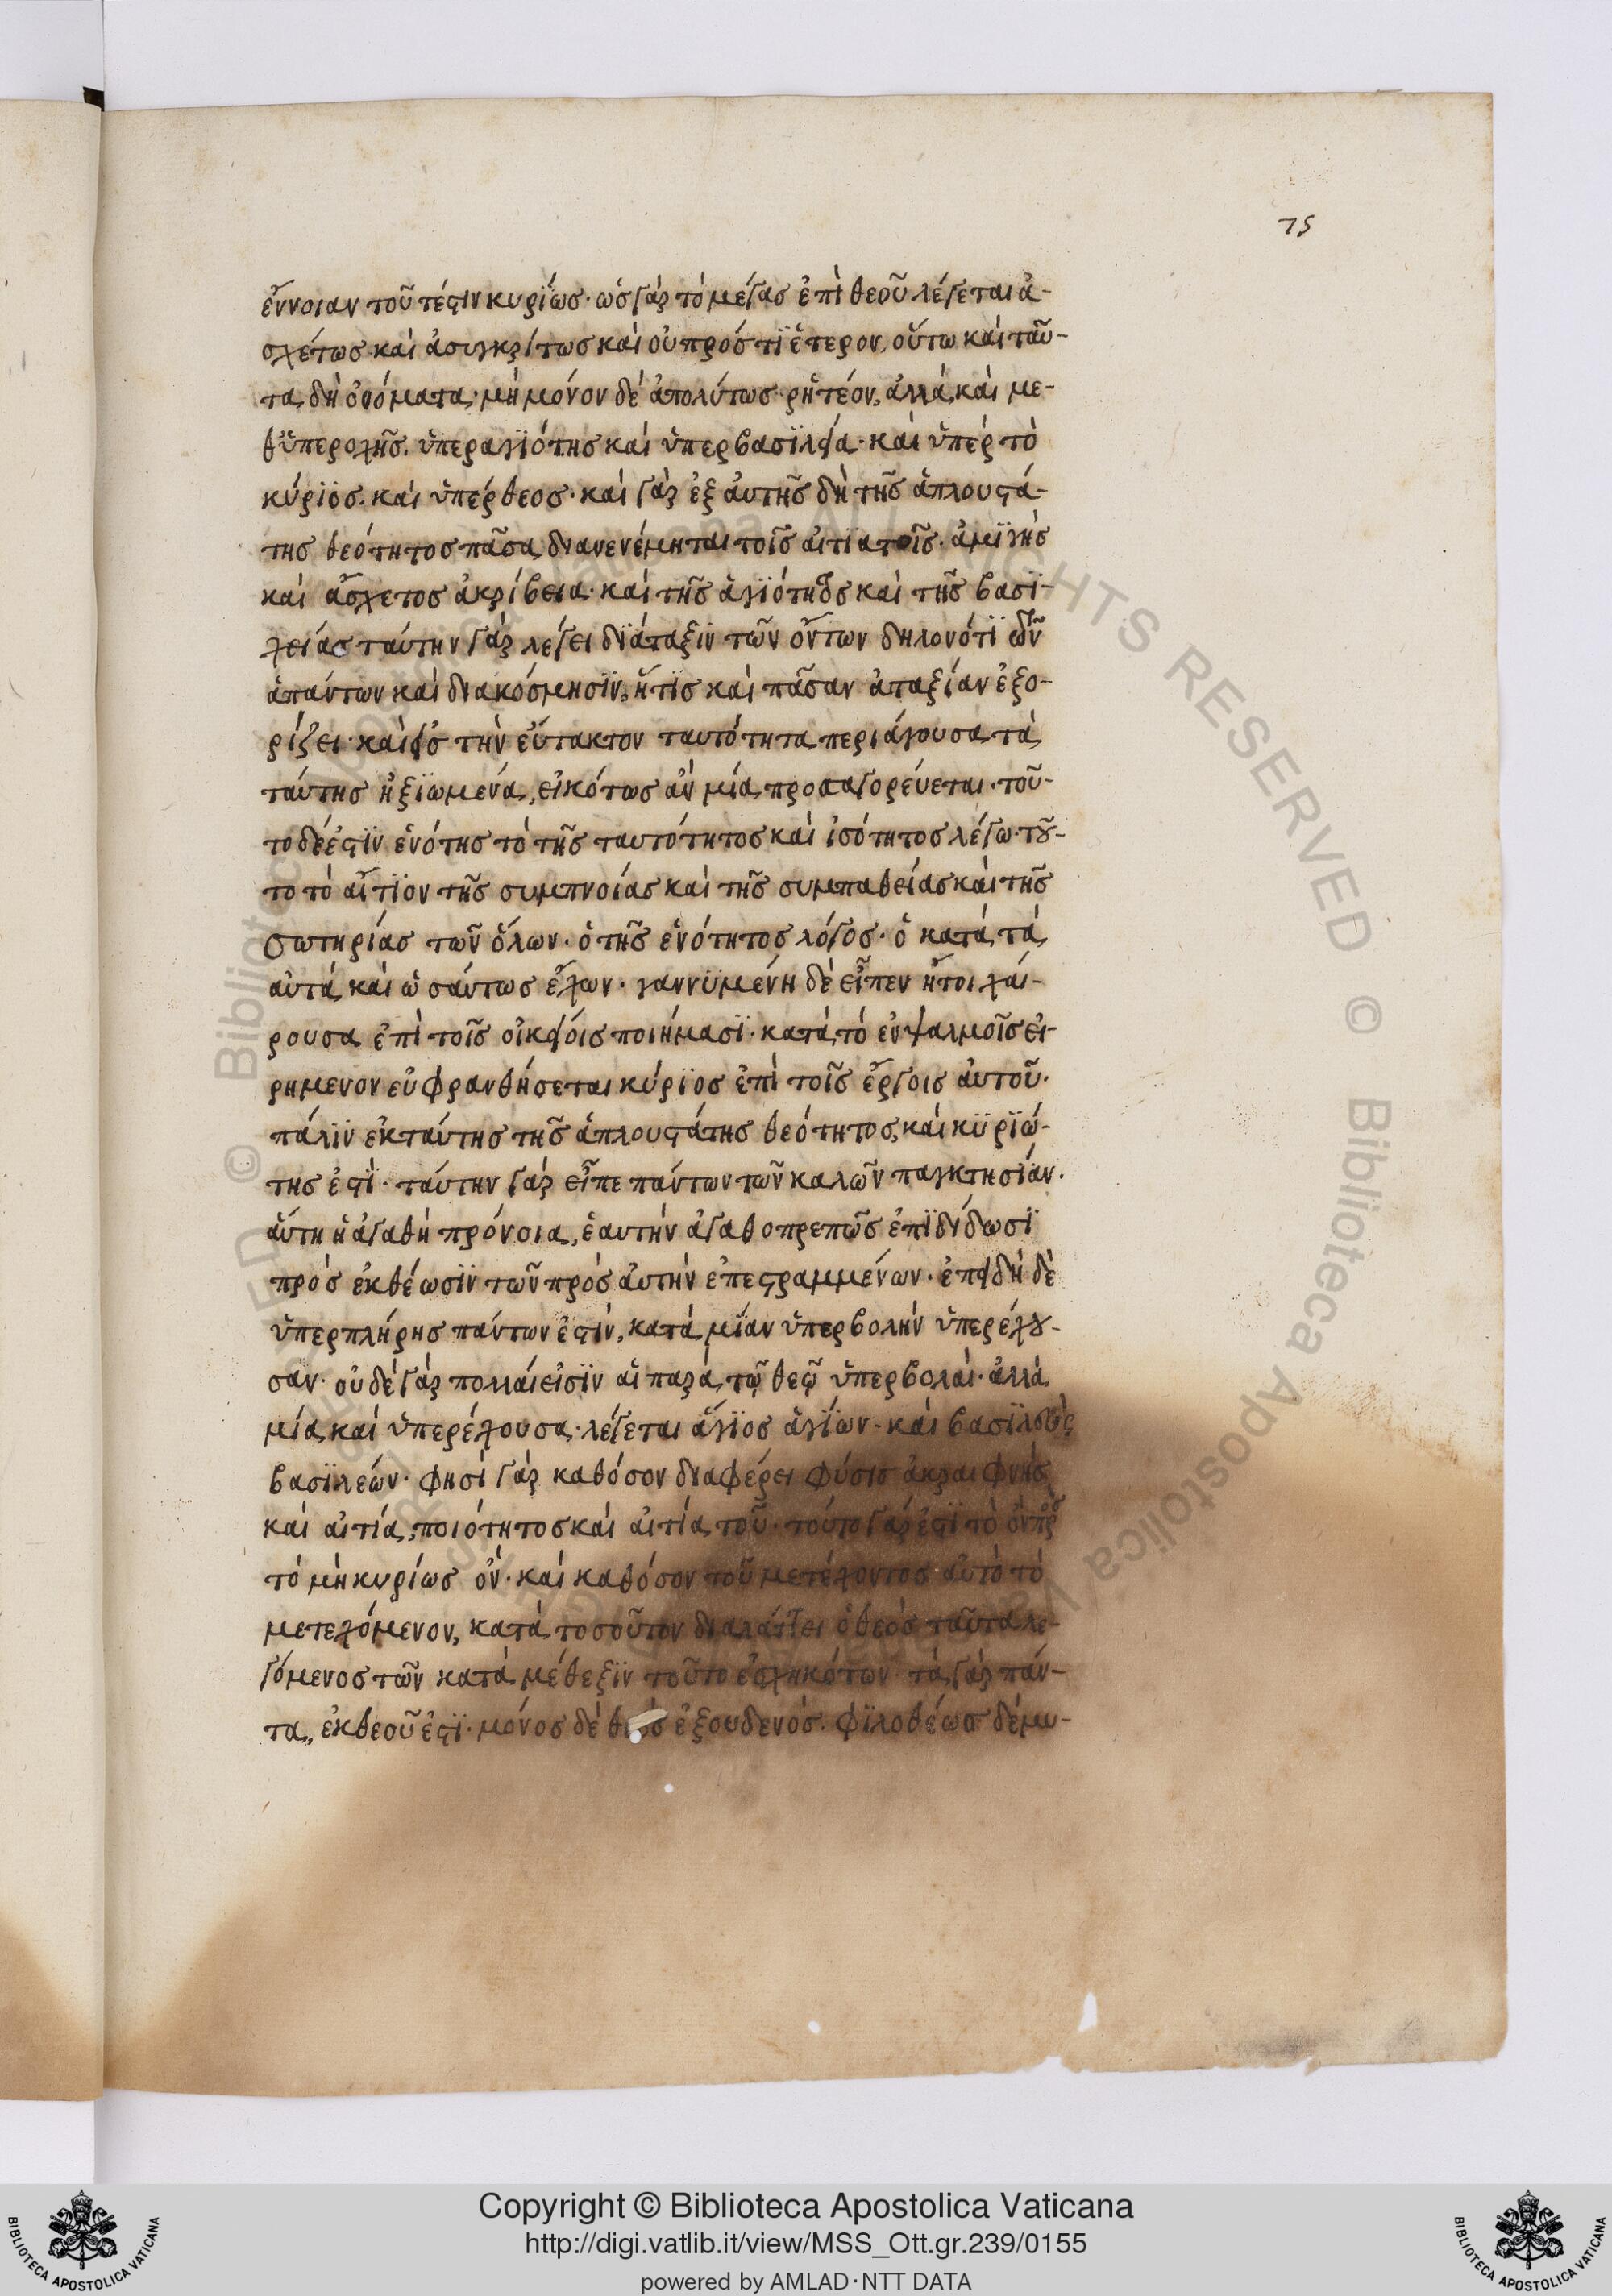 75
ἔννοιαν τουτέστιν κυρίως· ὡς γὰρ τὸ μέγας ἐπὶ θεοῦ λέγεται ἀ-
σχέτως καὶ ἀσυγκρίτως καὶ οὐ πρός τϊ ἕτερον, οὕτω καὶ ταῦ-
τα δὴ ὀνόματα· μὴ μόνον δὲ ἀπολύτως ῥητέον, ἀλλὰ καὶ με-
θ' ὑπεροχῆς. ὑπεραγϊότης καὶ ὑπερβασϊλεία· καὶ ὑπὲρ τὸ
κύρϊος. καὶ ὑπέρθεος· καὶ γὰρ ἐξ αὐτῆς δὴ τῆς ἁπλουστά-
της θεότητος πᾶσα διανενέμηται τοῖς αἰτϊατοῖς. ἀμϊγὴς
καὶ ἄσχετος ἀκρίβεια· καὶ τῆς ἁγϊότητος καὶ τῆς βασϊ-
λείας ταύτην γὰρ λέγει δϊάταξϊν τῶν ὄντων δηλονότϊ
ἁπάντων καὶ διακόσμησϊν, ἥτϊς καὶ πᾶσαν ἀταξίαν ἐξο-
ρίζει· καὶ εἰς τὴν εὔτακτον ταυτότητα περιάγουσα τὰ
ταύτης ἠξϊωμένα, εἰκότως ἂν μία προσαγορεύεται· τοῦ-
το δέ ἐστϊν ἑνότης τὸ τῆς ταυτότητος καὶ ἰσότητος λέγω· τοῦ-
το τὸ αἴτϊον τῆς συμπνοίας καὶ τῆς συμπαθείας καὶ τῆς
σωτηρίας τῶν ὅλων· ὁ τῆς ἑνότητος λόγος· ὁ κατὰ τὰ
αὐτὰ καὶ ὡσαύτως ἔχων· γαννϋμένη δὲ εἶπεν ἤτοι χαί-
ρουσα ἐπὶ τοῖς οἰκείοις ποιήμασϊ· κατὰ τὸ ἐν ψαλμοῖς εἰ-
ρημενον εὐφρανθήσεται κύρϊος ἐπὶ τοῖς ἔργοις αὐτοῦ·
πάλϊν ἐκ ταύτης τῆς ἁπλουστάτης θεότητος, καὶ κϋρϊό-
της ἐστϊ· ταύτην γὰρ εἶπε πάντων τῶν καλῶν παγκτησίαν·
αὕτη ἡ ἀγαθὴ πρόνοια, ἑαυτὴν ἀγαθοπρεπῶς ἐπϊδίδωσϊ
πρὸς ἐκθέωσϊν τῶν πρὸς αὐτὴν ἐπεστραμμένων· ἐπειδὴ δὲ
ὑπερπλήρης πάντων ἐστὶν, κατὰ μϊαν ὑπερβολὴν ὑπερέχου-
σαν· οὐδὲ γὰρ πολλαὶ εἰσϊν αἱ παρὰ τῷ θεῷ ὑπερβολαὶ· ἀλλὰ
μία καὶ ὑπερέχουσα· λέγεται ἅγϊος ἁγϊων· καὶ βασϊλεὺς
βασϊλεών· φησὶ γὰρ καθόσον διαφέρει φύσις ἀκραιφνὴς
καὶ αἰτία, ποιότητος καὶ αἰτίατοῦ· τοῦτο γὰρ ἐστϊ τὸ ὂν πρὸς
τὸ μὴ κυρίως ὂν· καὶ καθόσον τοῦ μετέχοντος αὐτὸ τὸ
μετεχόμενον, κατὰ τοσοῦτον διαλάττει ὁ θεὸς ταῦτα λε-
γόμενος τῶν κατὰ μέθεξϊν τοῦτο ἐσχηκότων· τὰ γὰρ πάν-
τα, ἐκ θεοῦ ἐστϊ· μόνος δὲ θεὸς ἐξ οὐδενός. φϊλοθέως δέ μυ-
Copyright © Biblioteca Apostolica Vaticana
http://digi.vatlib.it/view/MSS_Ott.gr.239/0155
powered by AMLAD·NTT DATA